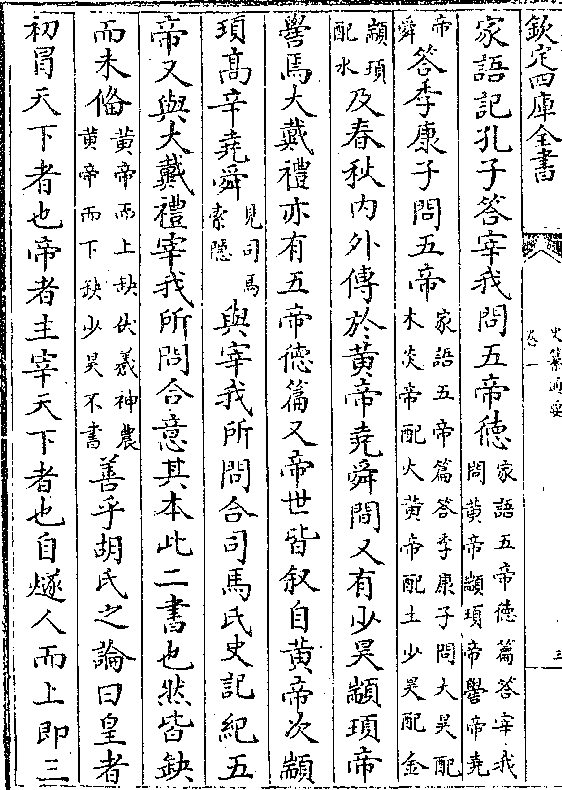 欽定四庫全書
史纂通要
卷一
三
家語記孔子答宰我問五帝徳家語五帝徳篇答宰我問黄帝顓頊帝嚳帝堯
帝舜答季康子問五帝家語五帝篇答季康子問大昊配木炎帝配火黄帝配土少昊配金
顓頊配水及春秋内外傳於黄帝堯舜間又有少昊顓頊帝
嚳焉大戴禮亦有五帝徳篇又帝世皆叙自黄帝次顓
頊髙辛堯舜見司馬索隠與宰我所問合司馬氏史記紀五
帝又與大戴禮宰我所問合意其本此二書也然皆缺
而未俻黄帝而上缺伏羲神農黄帝而下缺少昊不書善乎胡氏之論曰皇者
初冒天下者也帝者主宰天下者也自燧人而上即三